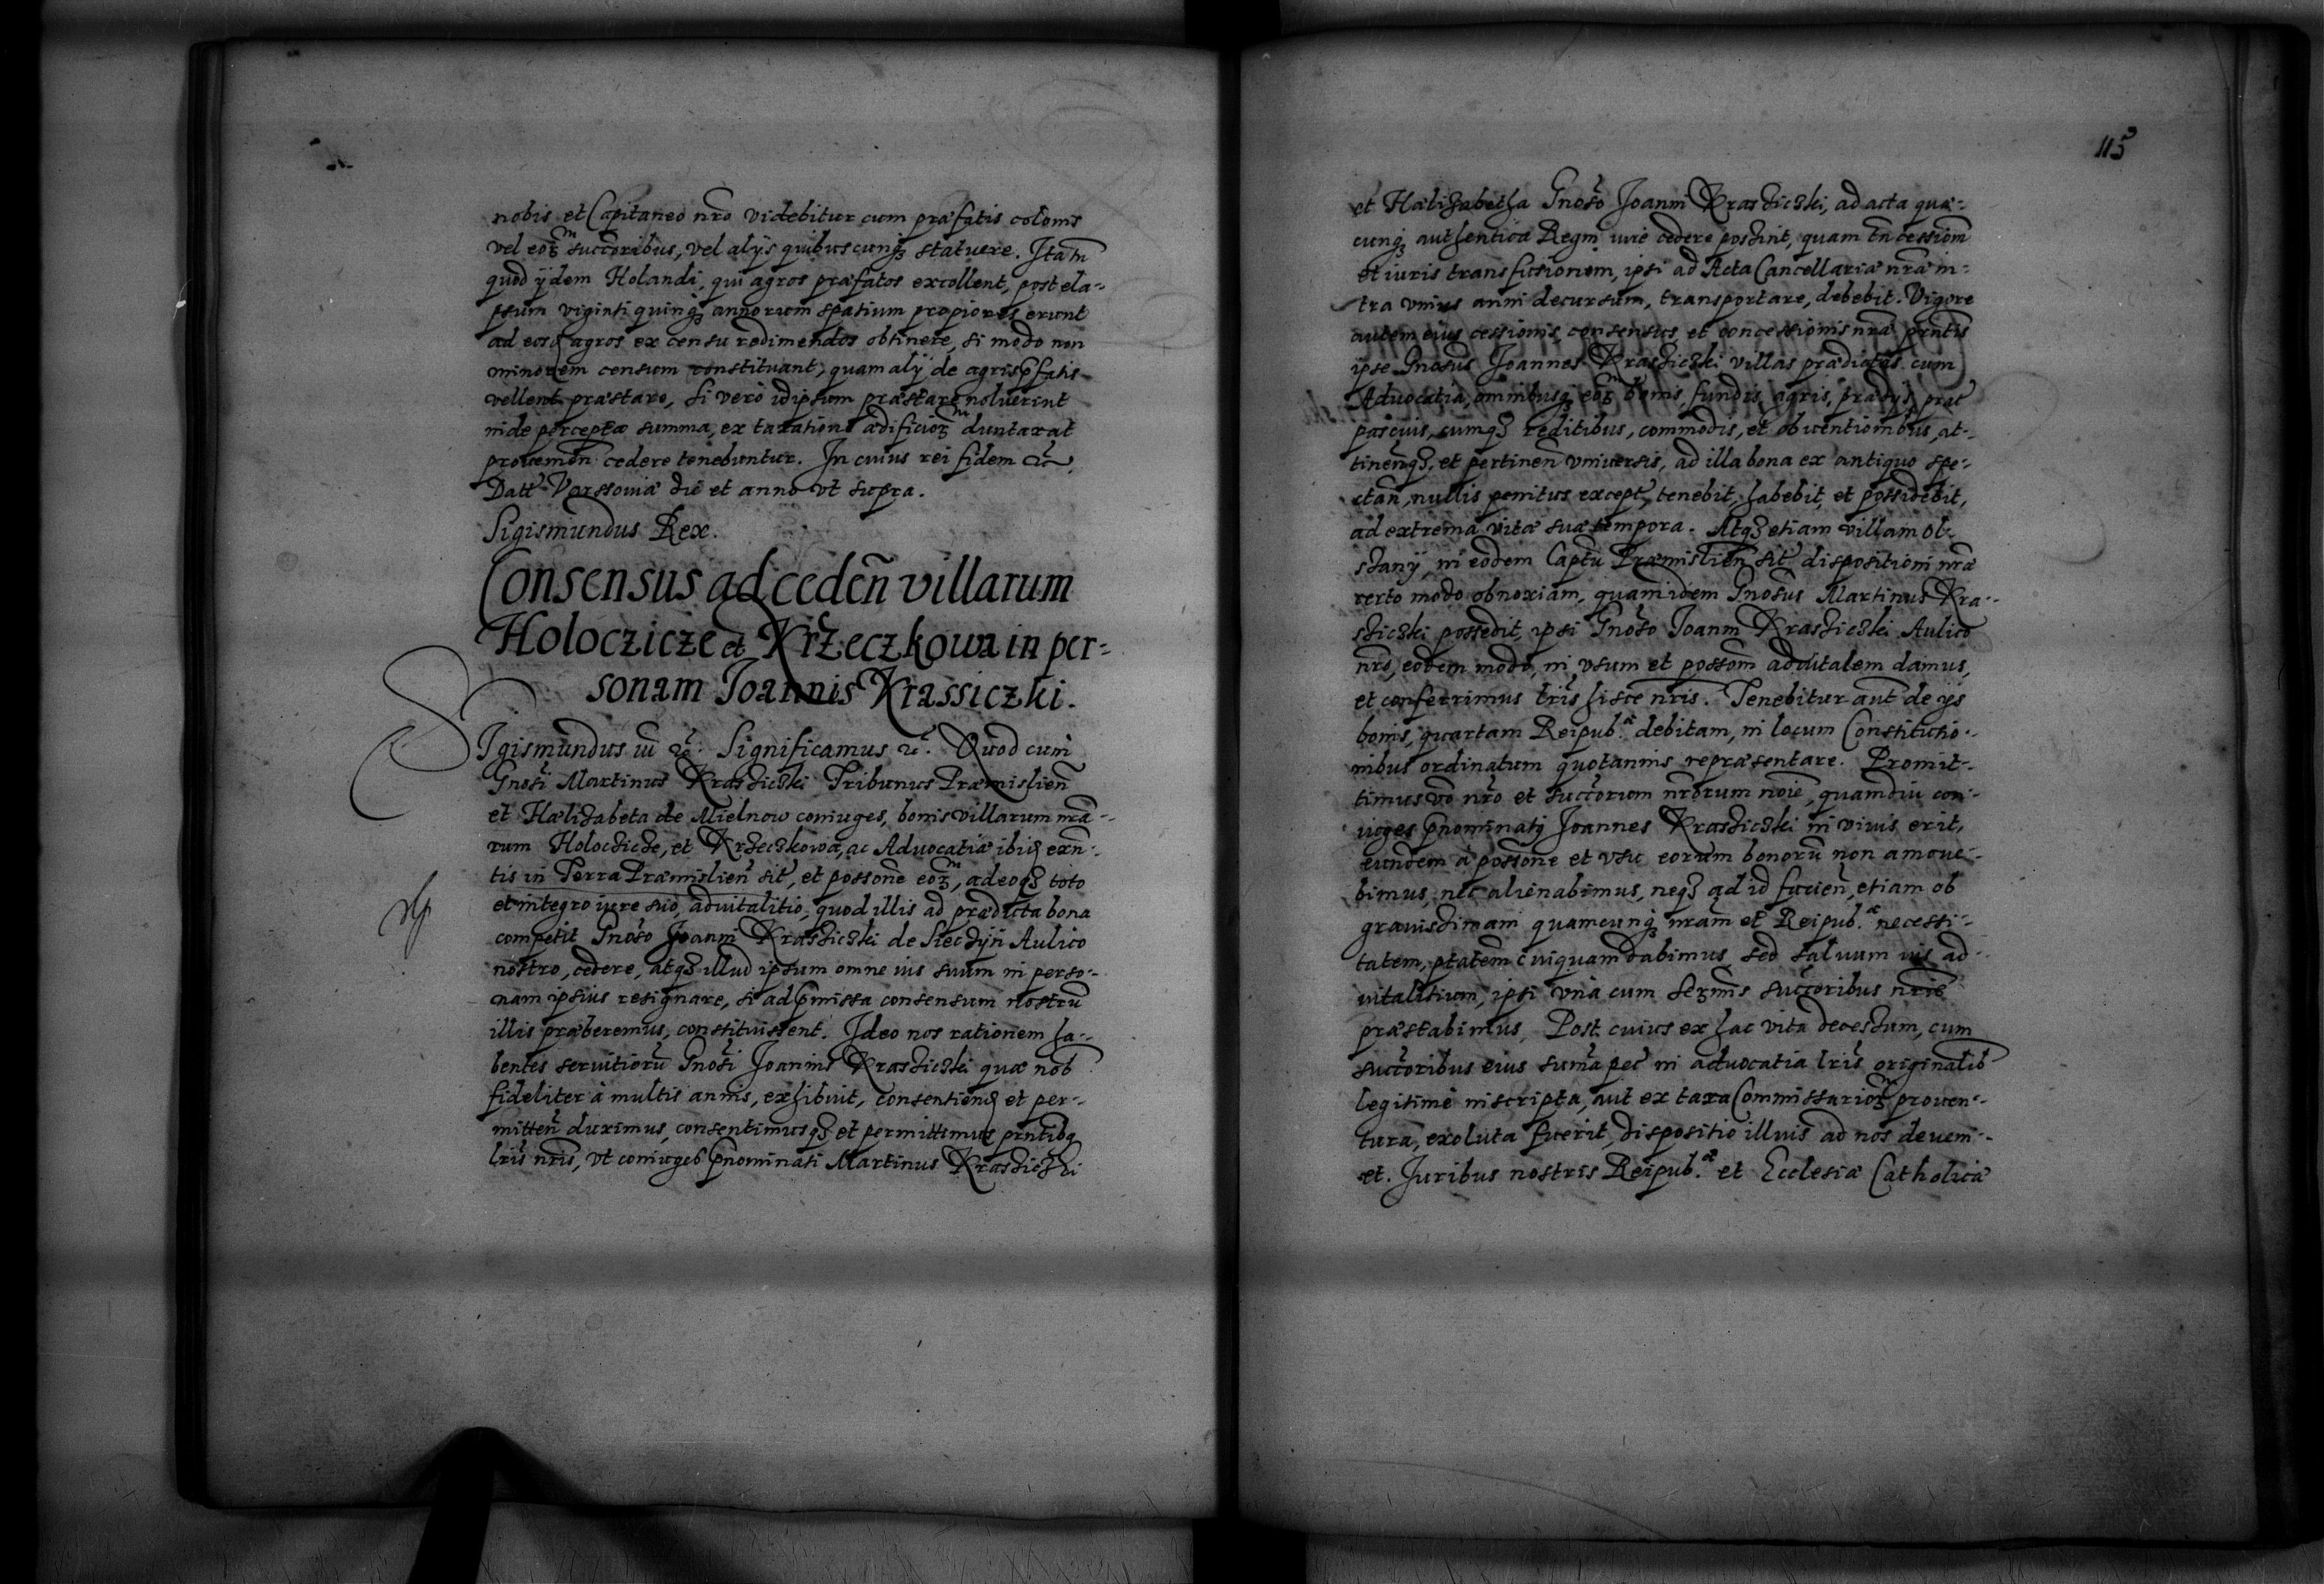 nobis et Capitaneo nro videbitur cum præfatis colonis
vel eorꝫ succoribus, vel alijs quibuscunqꝫ statuere. Ita tn
quod ijdem Holandi, qui agros præfatos excollent, post ela-
psum viginti quinqꝫ annorum spatium propiores erunt
ad eosdꝫ agros ex censu redimendos obtinere, si modo non
minorem censum constituant, quam alij de agris pfatis
vellent præstare, Si verò id ipsum præstare noluerint
inde percepta summa, ex taxatione ædificiorꝫ duntaxat
provenien cedere tenebuntur. In cuius rei fidem &c.
Datt Varssoviæ die et anno vt supra.
Sigismundus Rex.
Consensus ad ceden̄ villarum
Holoczicze et Krzeczkowa in per-
sonam Joannis Krassiczki.
SIgismundus iii &c. Significamus &c. Quod cum
Gnosi Martinus Krassiczki Tribunus Præmislien̄
et Hælizabeta de Mielnow coniuges, bonis villarum nra-
rum Holoczicze, et Krzeczkowa, ac Advocatiæ ibidꝫ exn-
tis in Terra Præmislien̄ sit, et possone eorꝫ, adeoqꝫ toto
et integro iure suo, advitalitio, quod illis ad prædicta bona
competit Gnoso Joanni Krassiczki de Sieczyn Aulico
nostro, cedere, atqꝫ illud ipsum omne ius suum in perso-
nam ipsius resignare, si ad pmissa consensum nostrū
illis præberemus, constituissent. Ideo nos rationem ha-
bentes servitiorū Gnosi Joannis Krassiczki quæ nob
fideliter à multis annis, exhibuit, consentiend et per-
mitten̄ duximus, consentimusqꝫ et permittimus prntibq
lris nris, vt coniuges pnominati Martinus Krassiczki
115
et Hælizabetha Gnoso Joanni Krassiczki, ad acta quæ-
cunqꝫ authentica Regni iure cedere possint, quam tn cessiom
et iuris transfusionem, ipsi ad Acta Cancellariæ nræ in-
tra vnius anni decursum, transportare, debebit. Vigore
autem eius cessionis, consensus, et concessionis nræ prntis
ipse Gnosus Joannes Krassiczki villas prædictas cum
Advocatia, omnibusqꝫ eorꝫ bonis, fundis, agris, prædijs, prat
pascuis, cumqꝫ reditibus, commodis, et obventionibus, at-
tinenqꝫ, et pertinen̄ vniversis, ad illa bona ex antiquo spe-
ctan̄, nullis penitus except, tenebit, habebit, et possidebit,
ad extrema vitæ suæ tempora. Atqꝫ etiam villam Ol-
szany, in eodem Captu Præmislien̄ sit dispositioni nræ
certo modo obnoxiam, quam idem Gnosus Martinus Kra-
siczki possedit, ipsi Gnoso Joanni Krassiczki Aulico
nro, eodem modo, in vsum et possom advitalem damus,
et conferrimus lris hisce nris. Tenebitur aut de ijs
bonis, quartam Reipub.æ debitam, in locum Constitutio-
nibus ordinatum quotannis repræsentare. Promit-
timus vō nro et succorum nrorum noie, quamdiu con-
iuges pnominati Joannes Krassiczki in vivis erit,
eundem à possone et vsu eorum bonorū non amove-
bimus, nec alienabimus, neqꝫ ad id facien̄, etiam ob
gravissimam quamcunqꝫ nram et Reipub.æ necessi-
tatem, ptatem cuiquam dabimus, sed salvum ius ad-
vitalitium, ipsi vna cum Sermis succoribus nris
præstabimus, Post cuius ex hac vita decessum, cum
succoribus eius sumā pec̄ in advocatia lris originalib
legitimè inscripta, aut ex taxa Commissariorꝫ proven-
tura, exoluta fuerit, dispositio illius ad nos deveni-
et. Juribus nostris Reipub.æ et Ecclesiæ Catholicæ